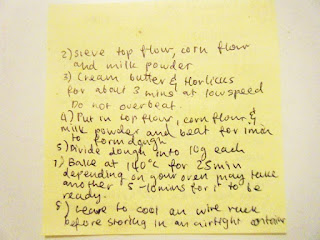 2) Sieve top flour, corn flour
and milk powder
3) Cream butter & Horlicks
for about 3 mins at low speed
Do not overbeat.
4) Put in top flour, corn flour &
milk powder and beat for 1min
to form dough
5) Divide dough into 10g each
7) Bake at 140°C for 25min
depending on your oven may take
another 5-10mins for it to be
ready.
8) Leave to cool on wire rack
before storing in an airtight container